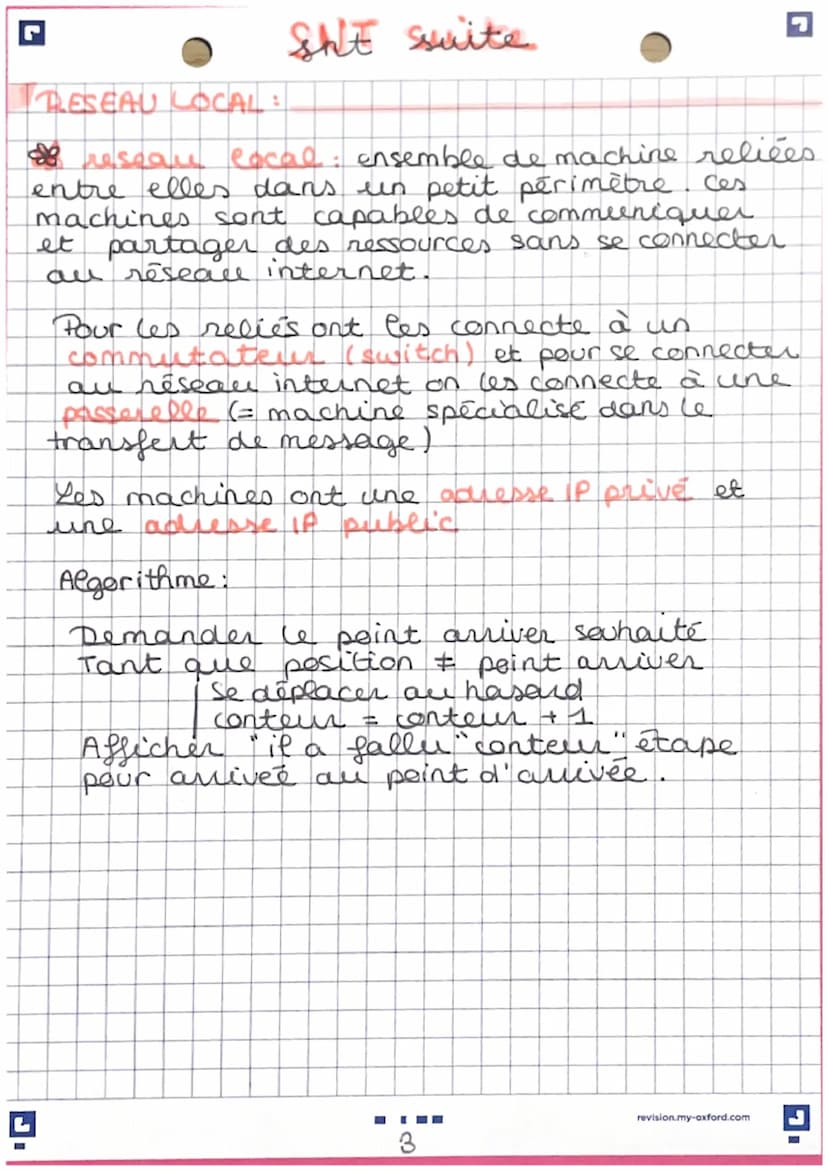 snt suite
RESEAU LOCAL :
reseau local : ensemble de machine reliées
entre elles dans un petit périmètre. Ces
machines sont capables de communiquer
et partager des ressources sans se connecter
au réseau internet.
Pour les reliés ont les connecte à un
commutateur (switch) et pour se connecter
au réseau internet on les connecte à une
passerelle (= machine spécialisé dans le
transfert de message)
Les machines ont une adresse IP privé et
une adresse IP public
Algorithme :
Demander le point arriver souhaité
Tant que position ≠ point arriver
se déplacer au hasard
conteur = conteur + 1
Afficher "il a fallu "conteur" étape
pour arriveé au point d'arrivée.
revision.my-oxford.com
3